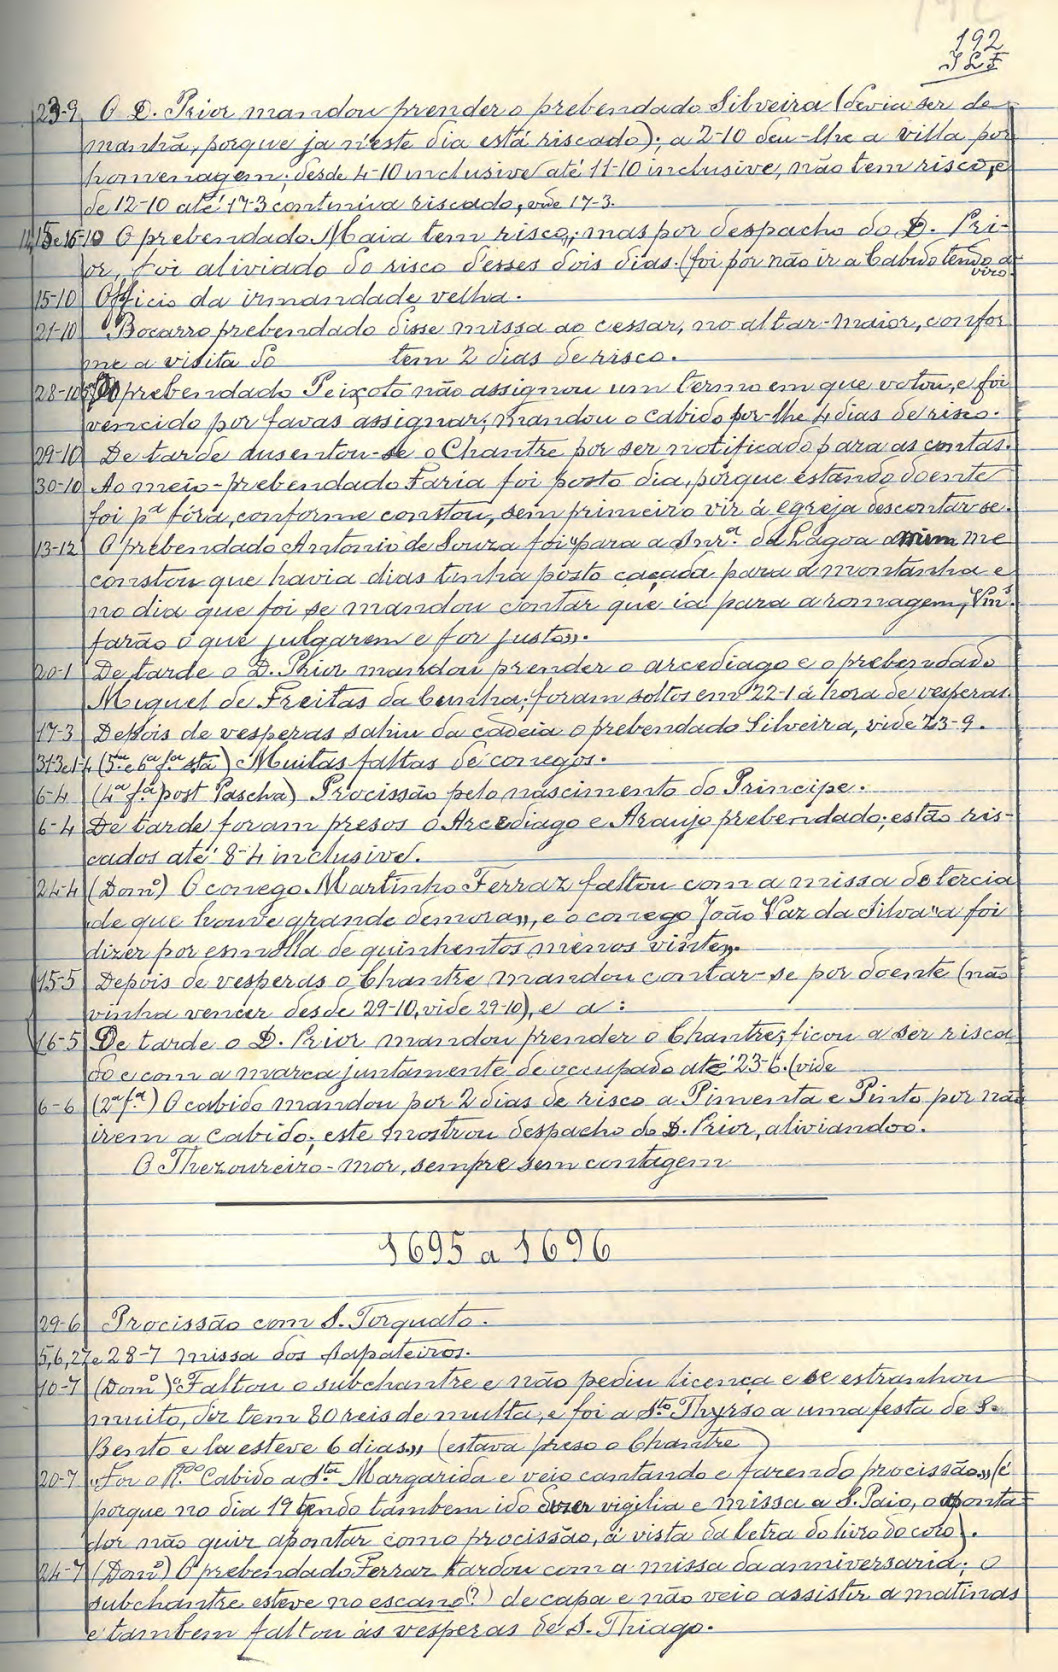 192
23-9 O D. Prior mandou prender o prebendado Silveira (devia ser de
manhã, porque ja n'este dia está riscado); a 2-10 deu-lhe a villa por
homenagem; desde 4-10 inclusive até 11-10 inclusive, não tem risco, e
de 12-10 até 17-3 continúa riscado, vide 17-3.
14,15 e 16-10 O prebendado Maia tem risco, mas por despacho do D. Pri-
or, foi aliviado do risco d'esses dois dias. (foi por não ir a Cabido tendo a-
viso.
15-10 Officio da irmandade velha.
21-10 Bocarro prebendado disse missa ao cessar, no altar-maior, confor
me a visita do tem 2 dias de risco.
28-10 O prebendado Peixoto não assignou um termo em que votou, e foi
vencido por favas assignar; mandou o cabido pôr-lhe 4 dias de risco.
29-10 De tarde ausentou-se o Chantre por ser notificado para as contas.
30-10 Ao meio-prebendado Faria foi posto dia, porque estando doente
foi pª fóra, conforme constou, sem primeiro vir á egreja descontar-se.
13-12 O prebendado Antonio de Souza foi "para a Snrª. da Lagoa a mim me
constou que havia dias tinha posto caçada para a montanha e
no dia que foi se mandou contar que ia para a romagem, Vms.
farão o que julgarem e for justo".
20-1 De tarde o D. Prior mandou prender o arcediago e o prebendado
Miguel de Freitas da Cunha; foram soltos em 22-1 á hora de vesperas.
17-3 Depois de vesperas sahiu da cadeia o prebendado Silveira, vide 23-9.
31-3 e 1-4 (5ª e 6ª fª stª) Muitas faltas de conegos.
6-4 (4ª fª post Pascha) Procissão pelo nascimento do Principe.
6-4 De tarde foram presos o Arcediago e Araujo prebendado; estão ris-
cados até 8-4 inclusive.
24-4 (Domº) O conego Martinho Ferraz faltou com a missa de tercia
de que houve grande demora", e o conego João Vaz da Silva "a foi
dizer por esmolla de quinhentos menos vinte".
15-5 Depois de vesperas o Chantre mandou contar-se por doente (não
vinha vencer desde 29-10, vide 29-10), e a:
16-5 De tarde o D. Prior mandou prender o Chantre; ficou a ser risca
do e com a marca juntamente de occupado até 23-6. (vide
6-6 (2ª fª) O cabido mandou por 2 dias de risco a Pimenta e Pinto por não
irem a cabido; este mostrou despacho do D. Prior, aliviando-o.
O Thezoureiro-mor, sempre sem contagem
1695 a 1696
29-6 Procissão com S. Torquato.
5, 6, 27 e 28-7 missa dos sapateiros.
10-7 (Domº) "Faltou o subchantre e não pediu licença e se estranhou
muito, diz tem 80 reis de multa, e foi a Stº Thyrso a uma festa de S.
Bento e la esteve 6 dias" (estava preso o Chantre)
20-7 "Foi o Rdo Cabido a Stª Margarida e veio cantando e fazendo procissão" (é
porque no dia 19 tendo tambem ido dizer vigilia e missa a S. Paio, o aponta-
dor não quiz apontar como procissão, á vista da letra do livro do coro).
24-7 (Domº) O prebendado Ferraz tardou com a missa da anniversaria; O
subchantre esteve no escano (?) de capa e não veio assistir a matinas
e tambem faltou ás vesperas de S. Thiago.